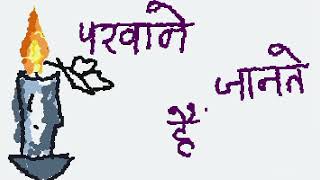 परवाने
जानते
हैं